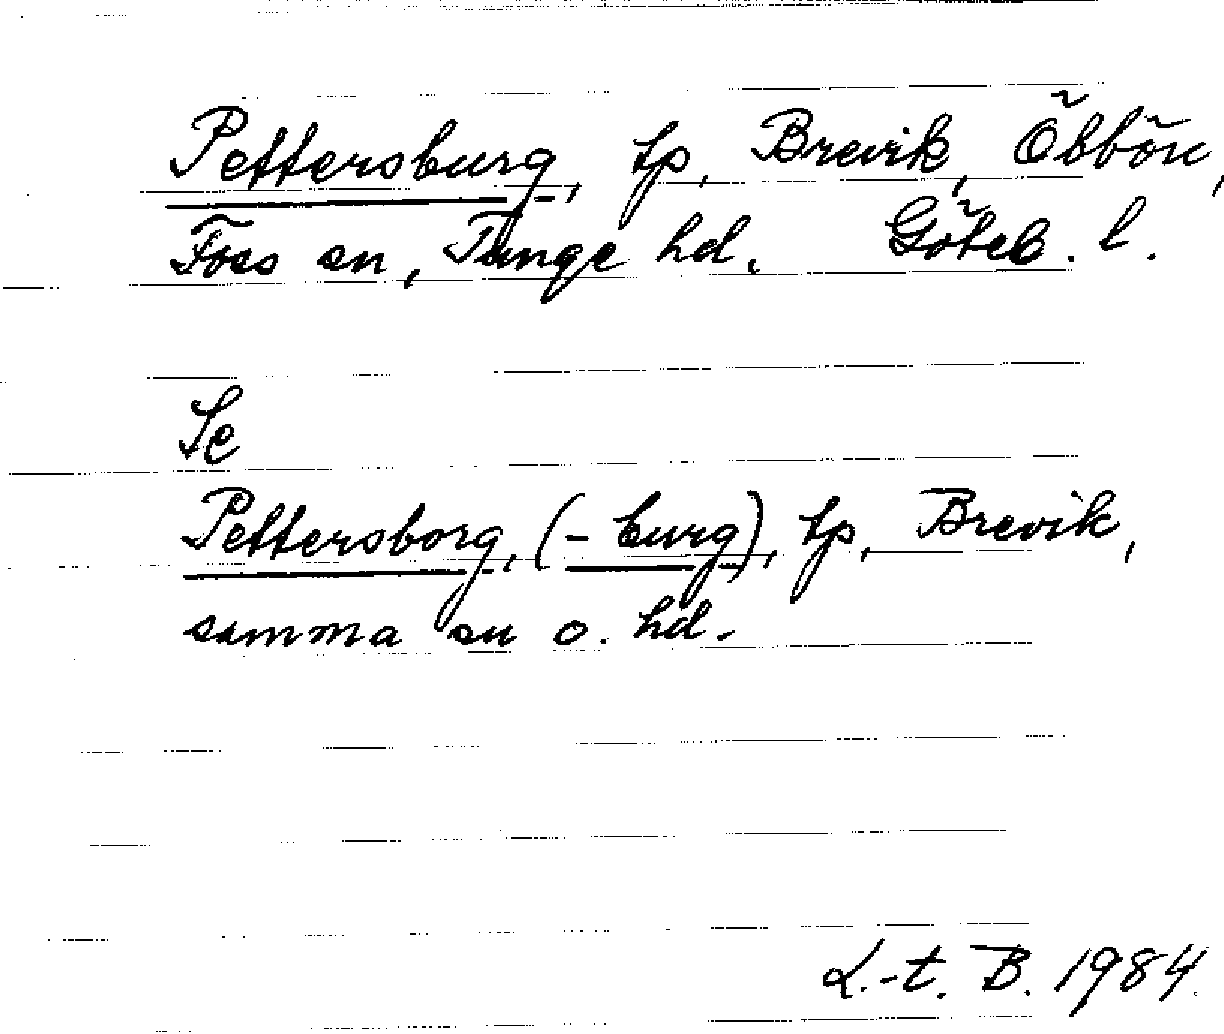 Pettersburg, tp, Brevik, Öbbön,
Foss sn, Tunge hd. Göteb. l.
Se
Pettersborg, (-burg), tp, Brevik,
samma sn o. hd.
L.-t. B. 1984.